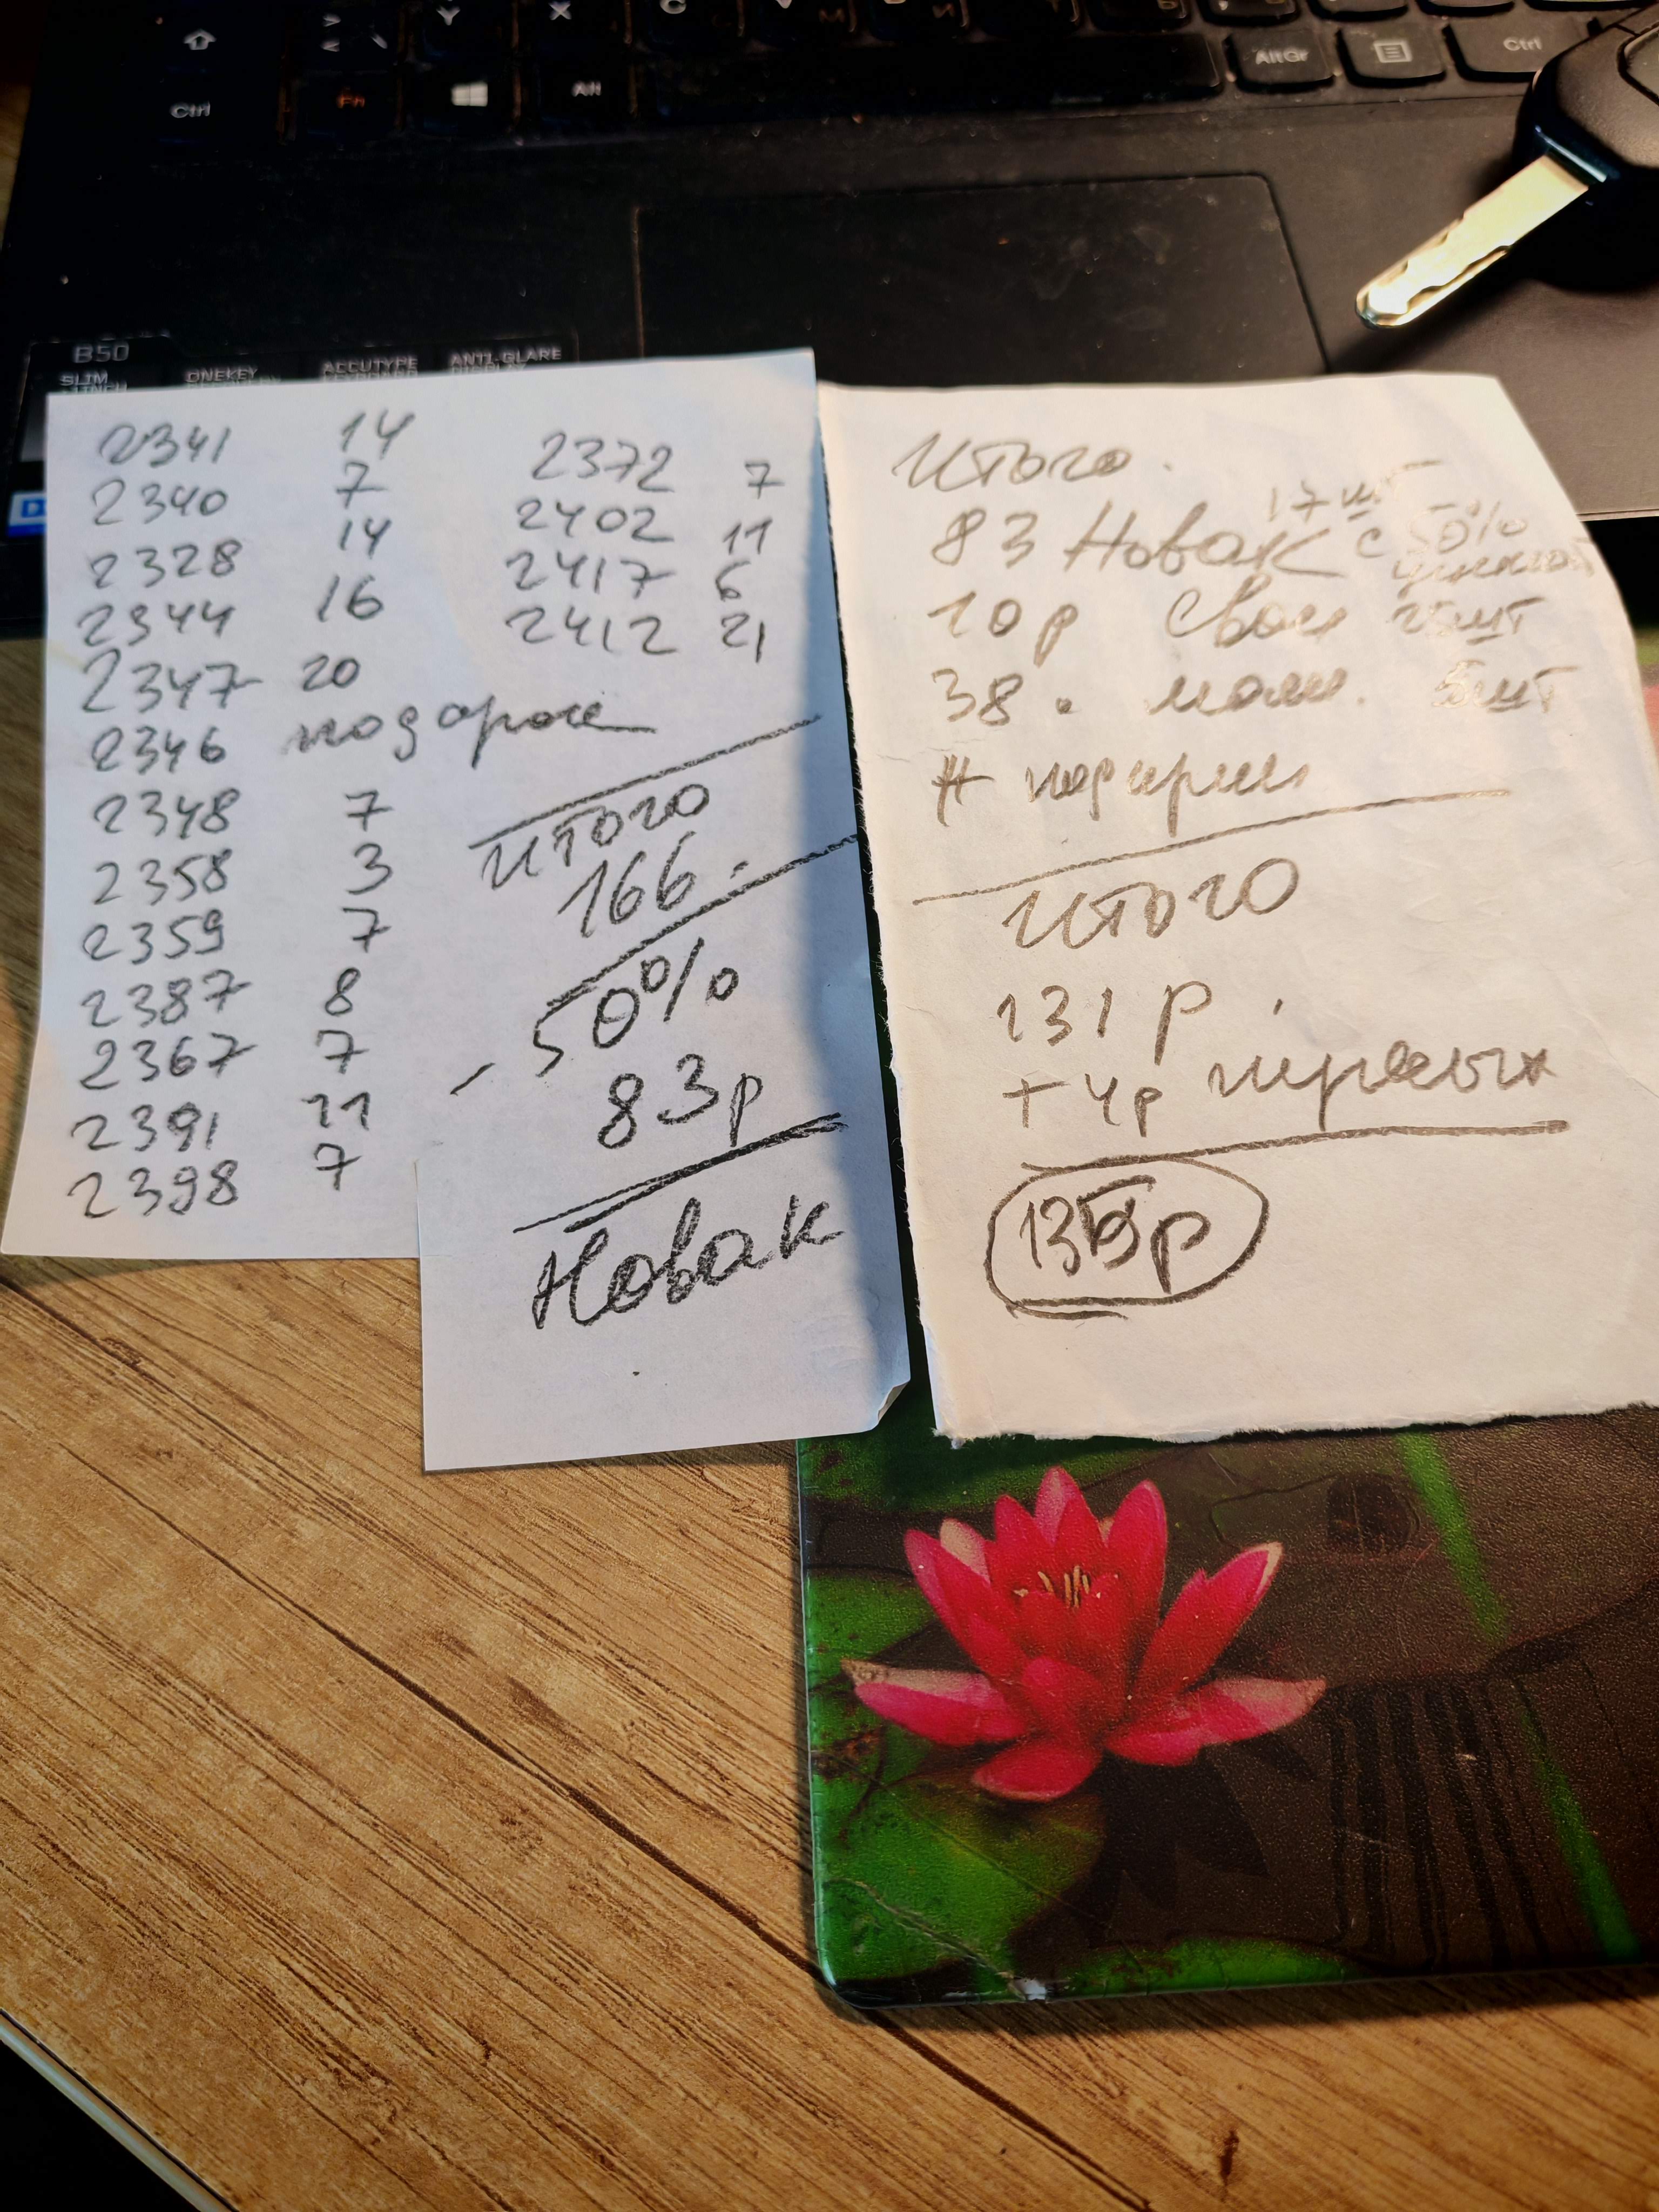 Y X C V
< > \
Ctrl Fn Alt AltGr Ctrl
B50
SLIM
ONEKEY
ACCUTYPE
ANTI-GLARE
2341 14
2340 7
2328 14
2344 16
2347 20
2346 подарок
2348 7
2358 3
2359 7
2387 8
2367 7
2391 11
2398 7
2372 7
2402 11
2417 6
2412 21
итого
166.
- 50%
83р
Новак
Итого.
83 Новак 17шт с 50%
10р свои шт
38. 5шт
итого
131 р.
+ 4р первых
135р